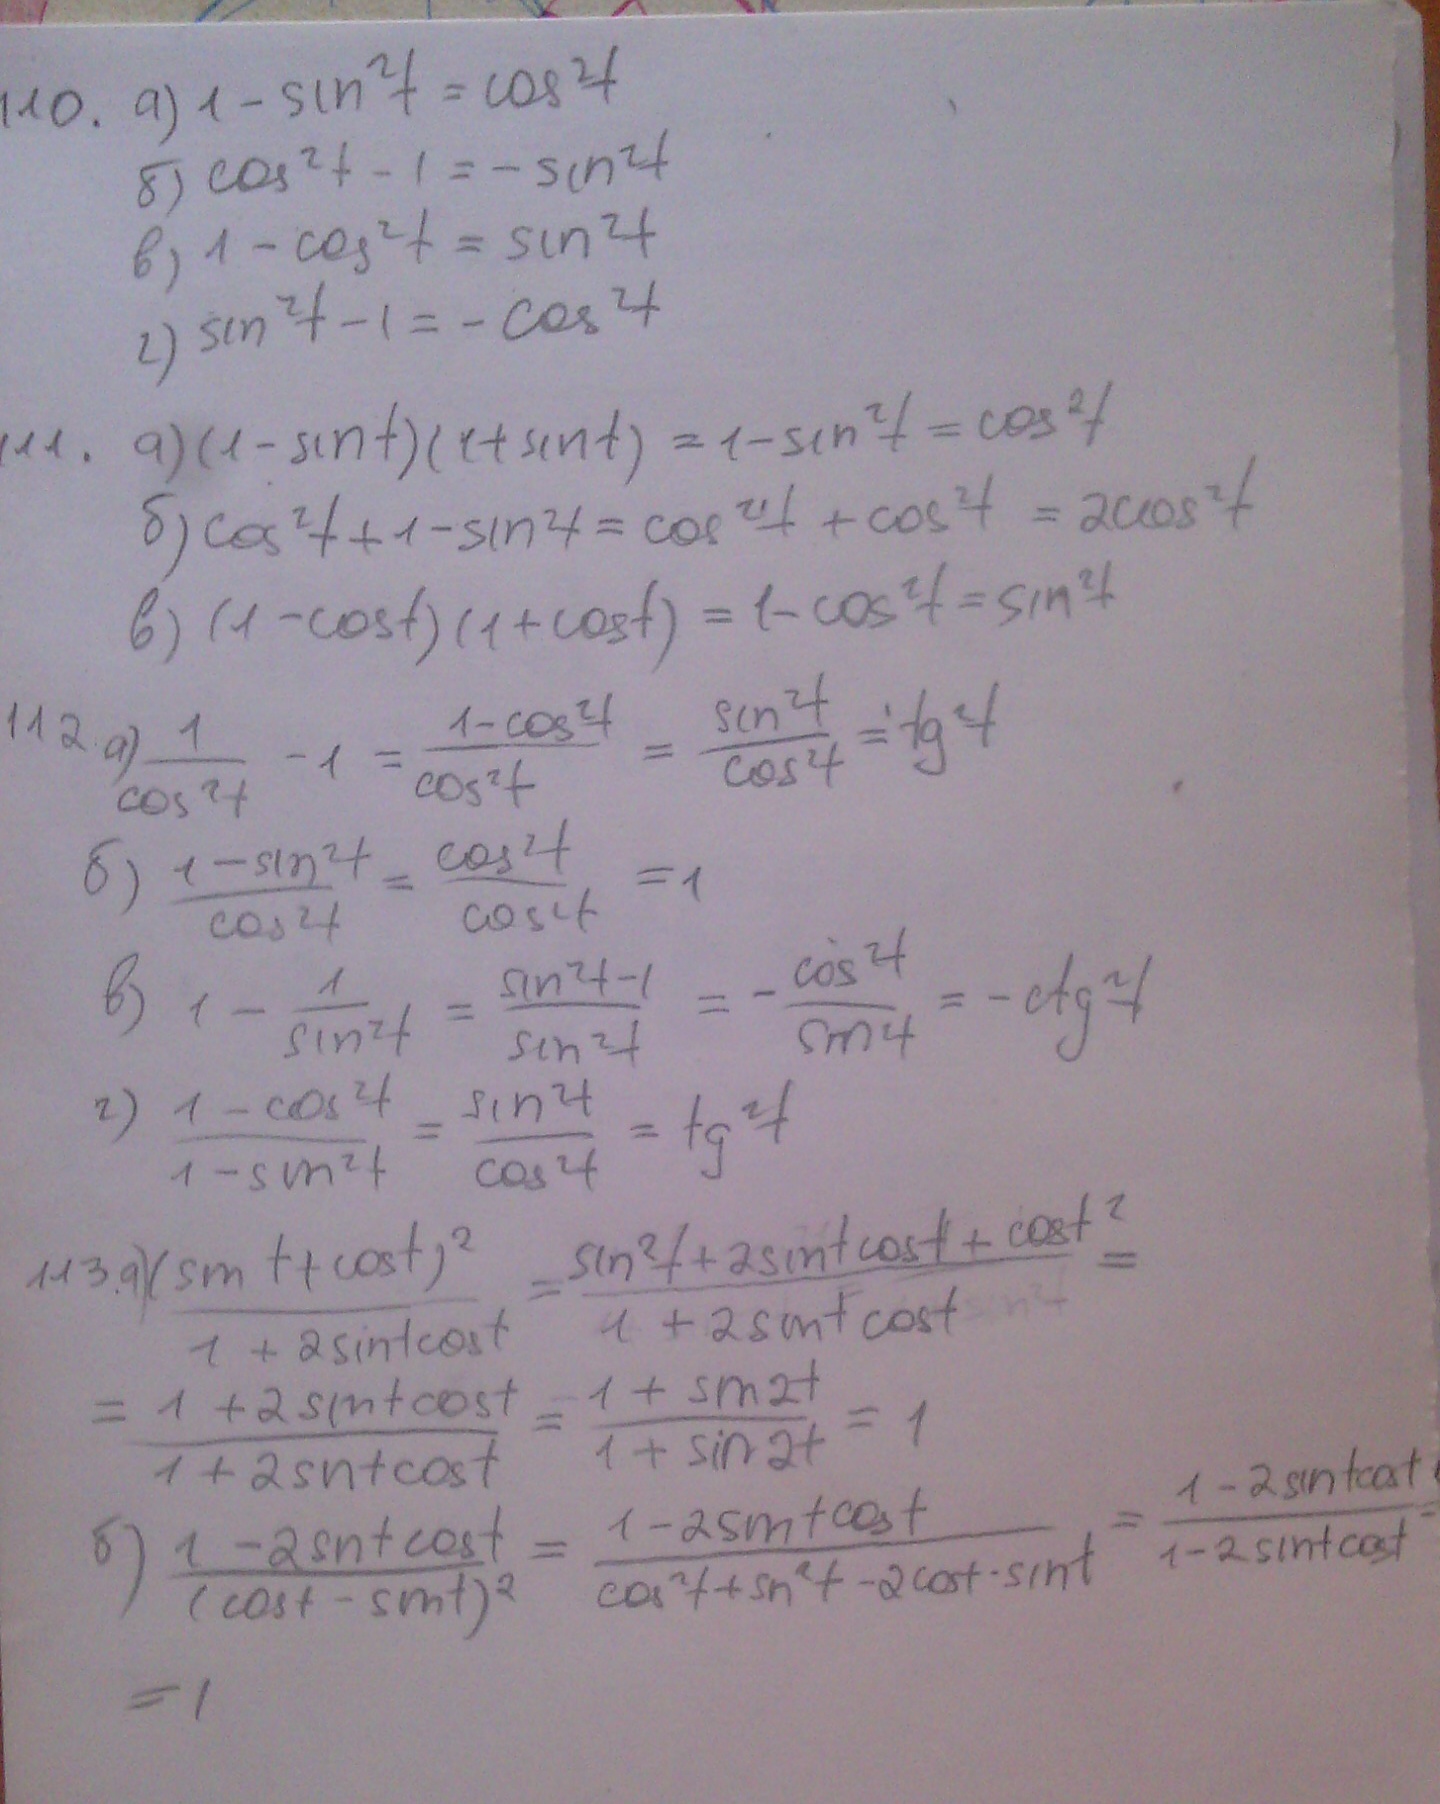 110. а) 1 - sin²t = cos²t
б) cos²t - 1 = - sin²t
в) 1 - cos²t = sin²t
г) sin²t - 1 = - cos²t
111. а) (1 - sint)(1 + sint) = 1 - sin²t = cos²t
б) cos²t + 1 - sin²t = cos²t + cos²t = 2cos²t
в) (1 - cost)(1 + cost) = 1 - cos²t = sin²t
112 а) 1/cos²t - 1 = (1 - cos²t)/cos²t = sin²t/cos²t = tg²t
б) (1 - sin²t)/cos²t = cos²t/cos²t = 1
в) 1 - 1/sin²t = (sin²t - 1)/sin²t = - cos²t/sin²t = - ctg²t
г) (1 - cos²t)/(1 - sin²t) = sin²t/cos²t = tg²t
113. а) (sint + cost)²/(1 + 2sintcost) = (sin²t + 2sintcost + cost²)/(1 + 2sintcost) =
= (1 + 2sintcost)/(1 + 2sntcost) = (1 + sin2t)/(1 + sin2t) = 1
б) (1 - 2sntcost)/(cost - sint)² = (1 - 2sintcost)/(cos²t + sn²t - 2cost·sint) = (1 - 2sintcost)/(1 - 2sintcost) =
= 1